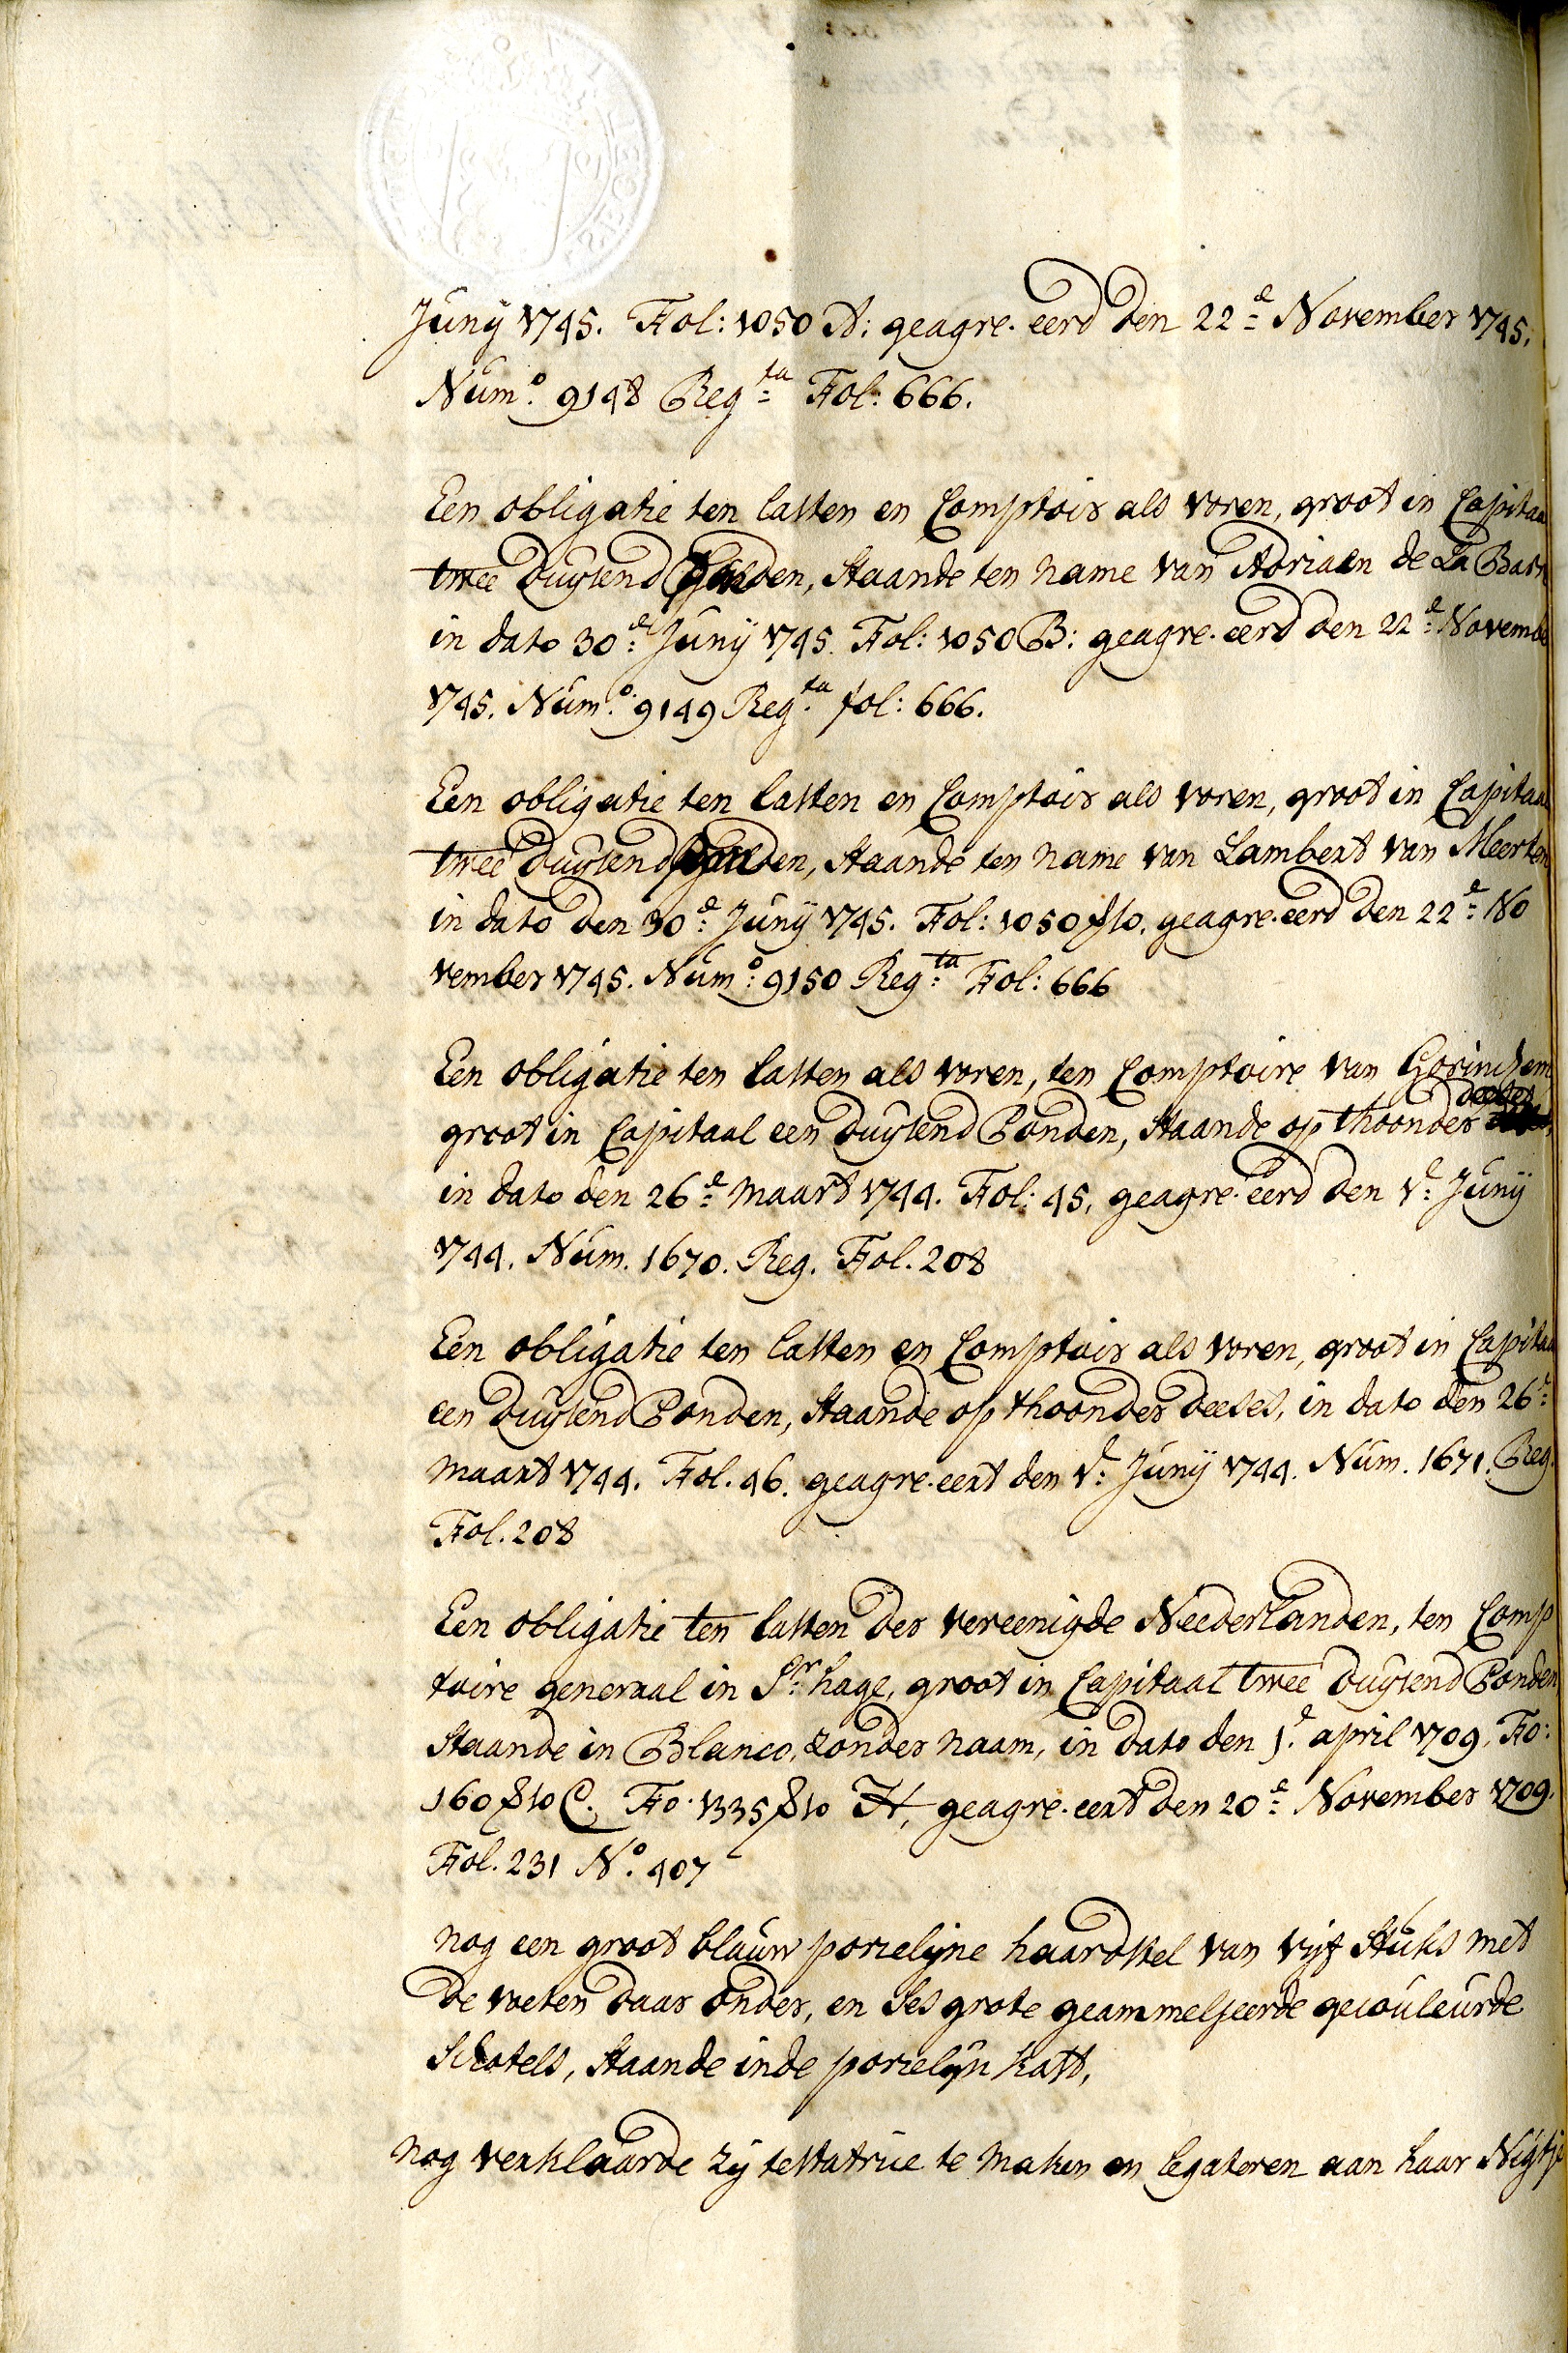 Juny 1745. Fol: 1050 A: geagre-eerd den 22e November 1745.
Numo. 9148 Regta Fol: 666.
Een obligatie ten lasten en Comptoir als voren, groot in Capitaa
twee duysend ponden, staande ten name van Adriaen de La Bas
in dato 30e Juny 1745. Fol: 1050 B: geagre-eerd den 22e Novemb
1745. Numo. 9149 Regta fol: 666.
Een obligatie ten lasten en Comptoir als voren, groot in Capitaal
twee duysend ponden, staande ten name van Lambert van Meerten
in dato den 30e Juny 1745. Fol: 1050 geagre-eerd den 22e No
vember 1745. Numo: 9150 Regta Fol: 666
Een obligatie ten lasten als voren, ten Comptoire van Gorinchem
deeses
groot in Capitaal een duysend Ponden, staande op thoonder
in dato den 26e maart 1744. Fol: 45, geagre-eerd den 1e Juny
1744. Num. 1670. Reg. Fol. 208
Een obligatie ten lasten en Comptoir als voren, groot in Capitaa
een duysend Ponden, staande op thoonder deeses, in dato den 26e
maart 1744. Fol. 46. geagre-eert den 1e Juny 1744. Num. 1671. Reg.
Fol. 208
Een obligatie ten lasten der vereenigde Neederlanden, ten Comp
toire generaal in Sr. hage, groot in Capitaal twee duysend Ponden
staande in Blanco, zonder naam, in dato den 1e april 1709, Fo:
160 C. Fo. 1335 H, geagre-eert den 20e November 1709.
Fol. 231 No. 407
nog een groot blauw porcelyne haardstel van vijf stuks met
de voeten daar onder, en ses grote geammeljeerde gecouleurde
schotels, staande inde porcelyn kast,
nog verklaarde zij testatrice te maken en legateren aan haar Nigtje